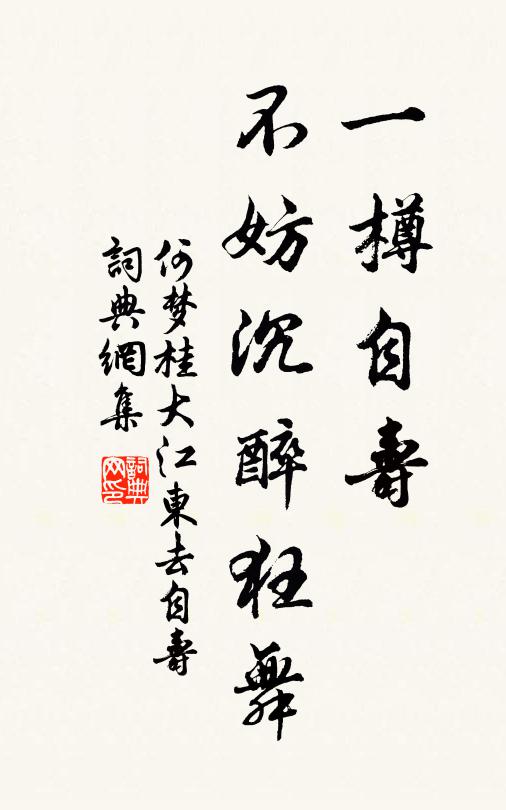 一樽自壽
不妨沉醉狂舞
何梦桂大江東去自壽
詞典網集
詞典网印